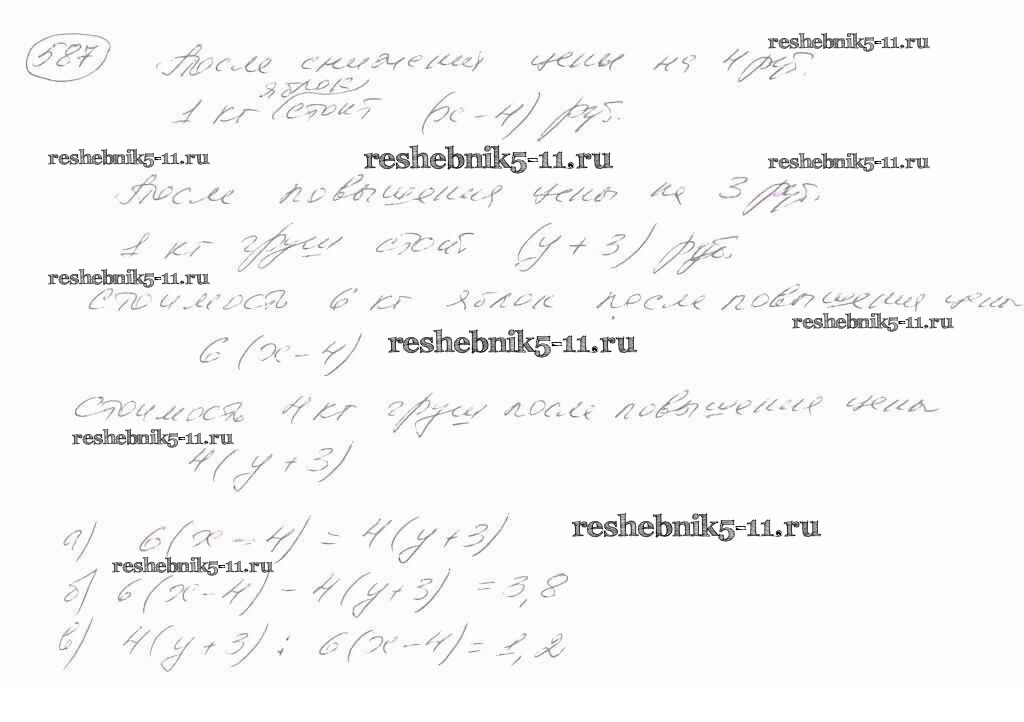 587 После снижения цены на 4 руб.
яблок
1 кг стоит (x - 4) руб.
После повышения цены на 3 руб.
1 кг груш стоит (y + 3) руб.
Стоимость 6 кг яблок после повышения цены
6 (x - 4)
Стоимость 4 кг груш после повышения цены
4 (y + 3)
а) 6 (x - 4) = 4 (y + 3)
б) 6 (x - 4) - 4 (y + 3) = 3,8
в) 4 (y + 3) : 6 (x - 4) = 1,2
reshebnik5-11.ru
reshebnik5-11.ru
reshebnik5-11.ru
reshebnik5-11.ru
reshebnik5-11.ru
reshebnik5-11.ru
reshebnik5-11.ru
reshebnik5-11.ru
reshebnik5-11.ru
reshebnik5-11.ru